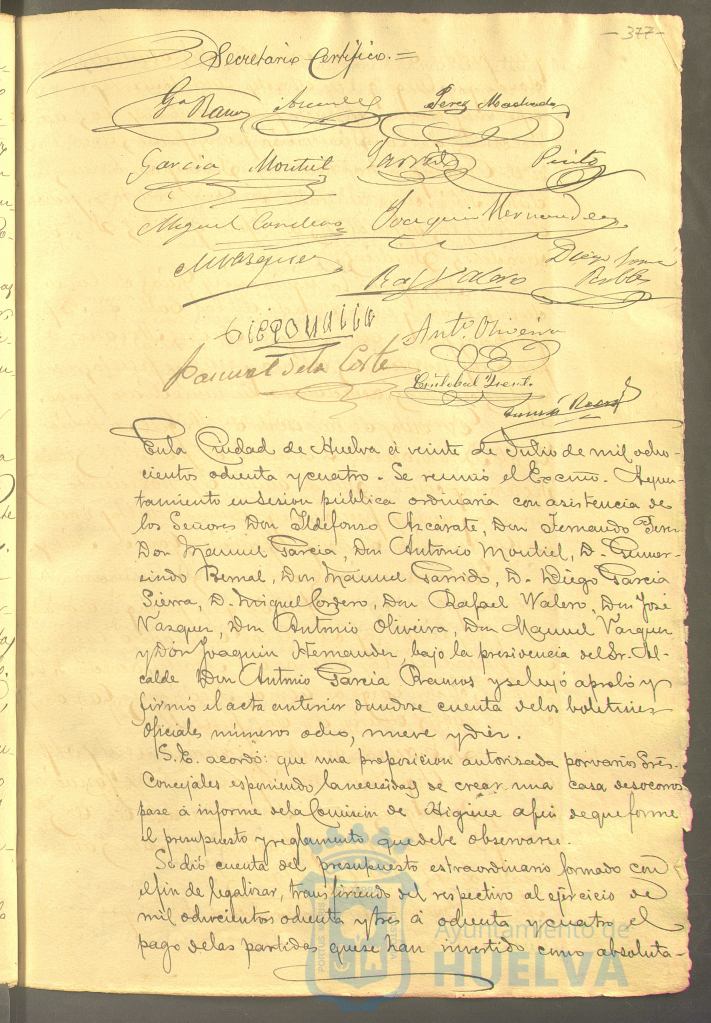 - 377 -
Secretario Certifico. =
Ga Ramos Azcarate Perez Machado
Garcia Montiel Garrido Pinto
Miguel Cordero Joaquin Hernandez
M Vazquez Diego Garcia
Raf Valero
Antº Oliveira
Manuel de la Corte
Cristobal
En la Ciudad de Huelva á veinte de Julio de mil ocho-
cientos ochenta y cuatro. Se reunió el Excmo. Ayun-
tamiento en sesion pública ordinaria con asistencia de
los Señores Don Ildefonso Azcárate, Don Fernando
Don Manuel Garcia, Don Antonio Montiel, D. Gumer-
sindo Bernal, Don Manuel Garrido, D. Diego Garcia
Sierra, D. Miguel Cordero, Don Rafael Valero, Don José
Vazquez, Don Antonio Oliveira, Don Manuel Vazquez
y Don Joaquin Hernandez, bajo la presidencia del Sr. Al-
calde Don Antonio Garcia Ramos y se leyó aprobó y
firmó el acta anterior dandose cuenta de los boletines
oficiales números ocho, nueve y diez.
S. E. acordó: que una proposicion autorizada por varios Sres.
Concejales esponiendo la necesidad de crear una casa de socorro
pase á informe de la Comision de Higiene a fin de que forme
el presupuesto y reglamento que debe observarse.
Se dió cuenta del presupuesto estraordinario formado con
el fin de legalizar, transfiriendo del respectivo al ejercicio de
mil ochocientos ochenta y tres á ochenta y cuatro el
pago de las partidas que se han invertido como absoluta-
Ayuntamiento de
HUELVA